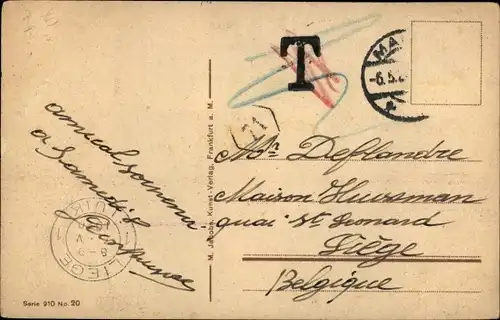 amical souvenir
a Samedi
T
MA
-6.5.
71
Mr Deflandre
Maison Huisman
quai St Leonard
Liège
Belgique
LIEGE
LUIK
8-9
M. Jacobs, Kunst-Verlag, Frankfurt a. M.
Serie 910 No. 20